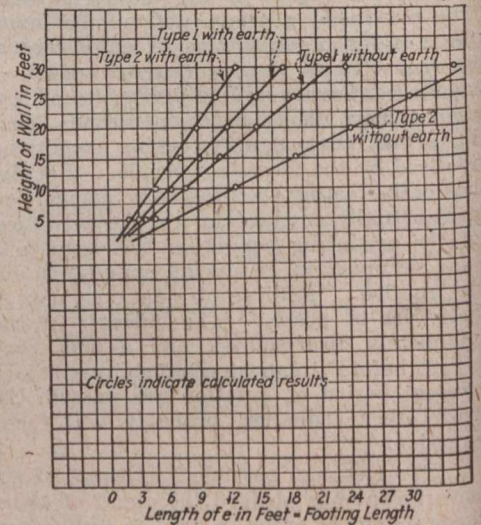 Type 1 with earth
Type 2 with earth
Type 1 without earth
Type 2
without earth
Height of Wall in Feet
30
25
20
15
10
5
Circles indicate calculated results
0 3 6 9 12 15 18 21 24 27 30
Length of e in Feet = Footing Length